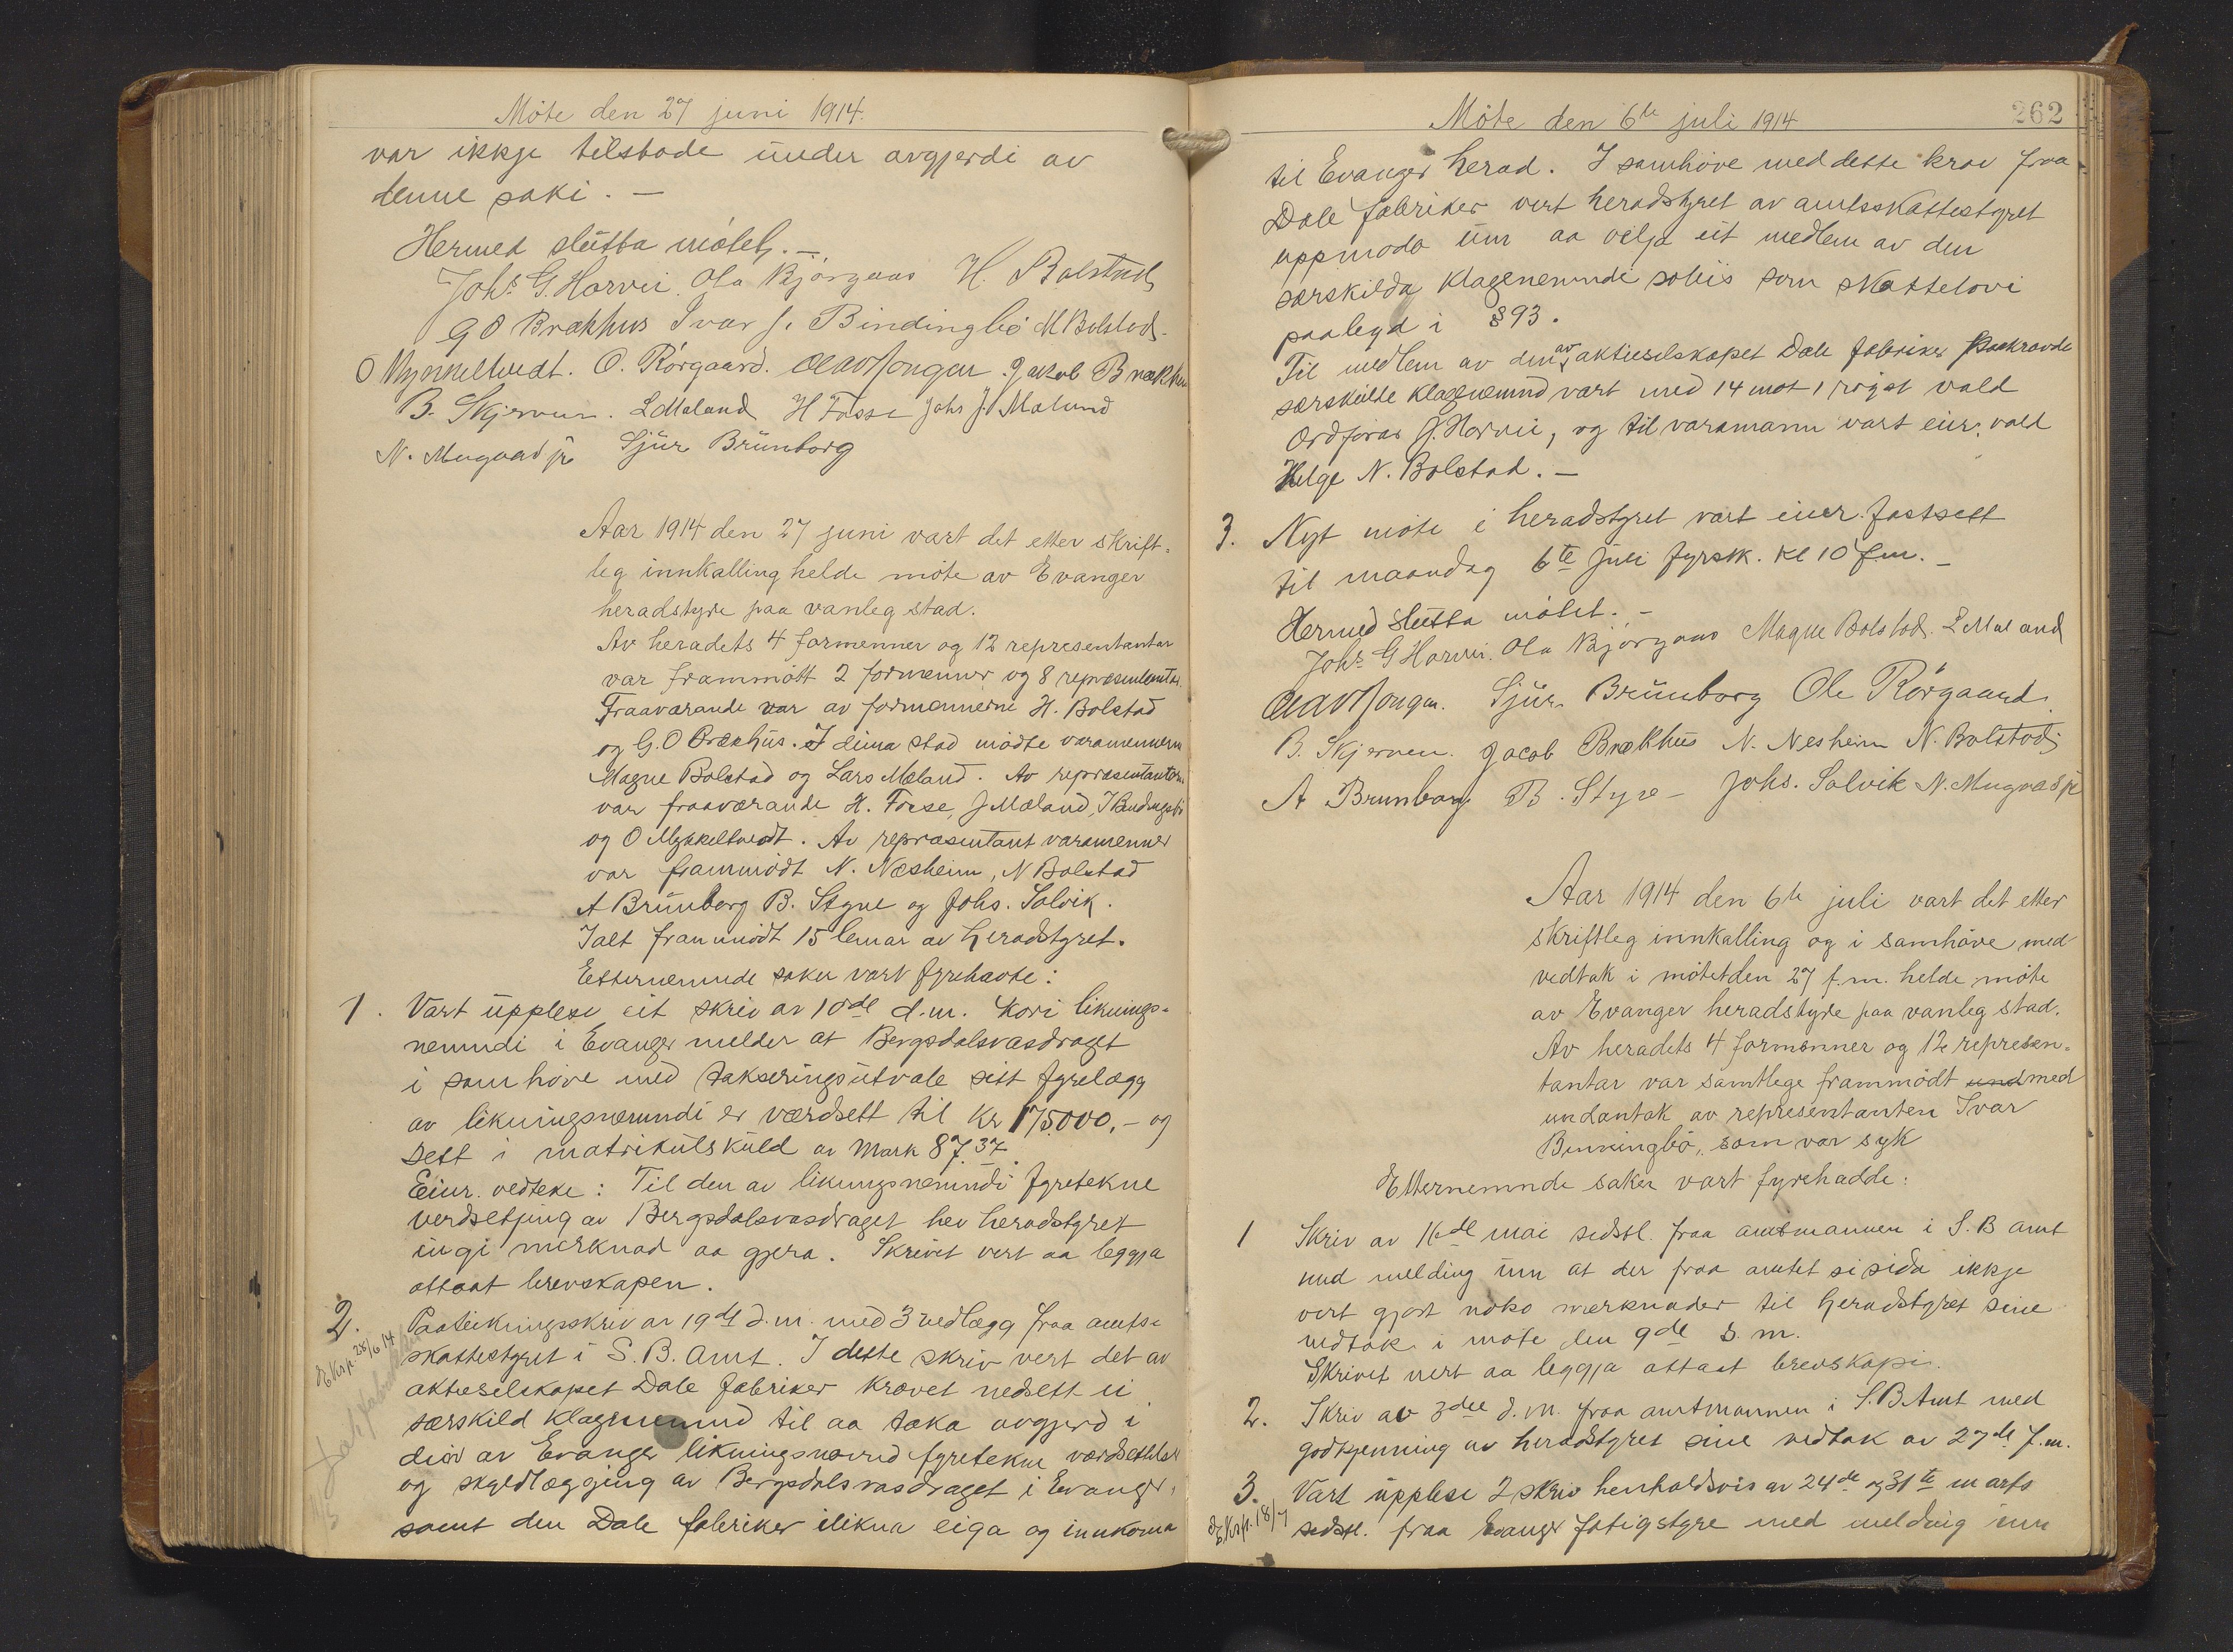 Möte den 27 juni 1914.
var ikkje tilstade under avgjerdi av
denne saki. —
Hermed slutta mötet. —
Johs G. Horvei. Ola Bjørgaas H. Bolstad
G O Brækhus Ivar J. Bindingbö M Bolstad.
O Mykkeltvedt. O. Rörgaard. Jakob Brækhus
B. Skjerven. L Mæland H Fosse Johs J. Mæland
N. Mugaas jr Sjur Brunborg
Aar 1914 den 27 juni vart det etter skrift-
leg innkalling helde möte av Evanger
heradstyre paa vanleg stad.
Av heradets 4 formenner og 12 representantar
var frammött 2 formenner og 8 representantar.
Fraaværande var av formennerne H. Bolstad
og G. O Brækhus. I deira stad mödte varamennerne
Magne Bolstad og Lars Mæland. Av representantern
var fraaværande H. Fosse, J Mæland, I Bindingsbö
og O Mykkeltvedt. Av representant varamenner
var frammödt N. Næsheim, N Bolstad
A Brunborg B. Styve og Johs. Solvik.
Ialt frammödt 15 lemar av heradstyret.
Etternemnde saker vart fyrehavte:
1. Vart upplese eit skriv av 10de d.m. kori liknings-
nemndi i Evanger melder at Bergsdalsvasdraget
i samhöve med takseringsutvale sitt fyrelægg
av likningsnemndi er værdsett til kr 175000,- og
sett i matrikulskuld av Mark 87.37.
Einr. vedteke: Til den av likningsnemndi fyretekne
verdsetjing av Bergsdalsvasdraget hev heradstyret
ingi merknad aa gjera. Skrivet vert aa leggja
attaat brevskapen.
2. Paateikningsskriv av 19de d.m. med 3 vedlægg fraa amts-
Eksp. 28/6 14
skattestyret i S. B. Amt. I dette skriv vert det av
aktieselskapet Dale fabriker krævet nedsett ei
særskild klagenemnd til aa taka avgjerd i
den av Evanger likningsnemnd fyretekne værdsettelse
og skyldlægging av Bergsdalsvasdraget i Evanger,
samt den Dale fabriker ilikna eiga og innkoma
Möte den 6te juli 1914
262
til Evanger herad. I samhöve med dette krav fraa
Dale fabriker vert heradstyret av amtsskattestyret
uppmoda um aa velja eit medlem av den
særskilda klagenemndi soleis som skattelovi
paalegd i §93.
Til medlem av den av aktieselskapet Dale fabriker paakravde
særskilte klagenemnd vart med 14 mot 1 röyst vald
Ordförar J. Horvei, og til varamann vart einr. vald
Helge N. Bolstad. —
3. Nyt möte i heradstyret vart einr. fastsett
til maandag 6te juli fyrstk. kl 10 f.m. —
Hermed slutta mötet. —
Johs G Horvei. Ola Bjørgaas Magne Bolstad. L Mæland
Sjur Brunborg Ole Rörgaard
B. Skjerven. Jacob Brækhus N. Nesheim N. Bolstad
A Brunborg B. Styve — Johs. Solvik N. Mugaas jr
Aar 1914 den 6te juli vart det etter
skriftleg innkalling og i samhöve med
vedtak i mötet den 27 f.m. helde möte
av Evanger heradstyre paa vanleg stad.
Av heradets 4 formenner og 12 represen-
tantar var samtlege frammödt und med
undantak av representanten Ivar
Binningbö, som var syk
Etternemnde saker vart fyrehadde:
1 Skriv av 16de mai sidstl. fraa amtmannen i S. B amt
med melding um at der fraa amtet si sida ikkje
vert gjort noko merknader til heradstyret sine
vedtak i möte den 9de s.m.
Skrivet vert aa leggja attaat brevskapi.
2. Skriv av 3die d.m. fraa amtmannen i S. B Amt med
godkjenning av heradstyret sine vedtak av 27de f.m.
3. Vart upplese 2 skriv henholdsvis av 24de og 31te marts
Eksp. 18/7
sidstl. fraa Evanger fatigstyre med melding um